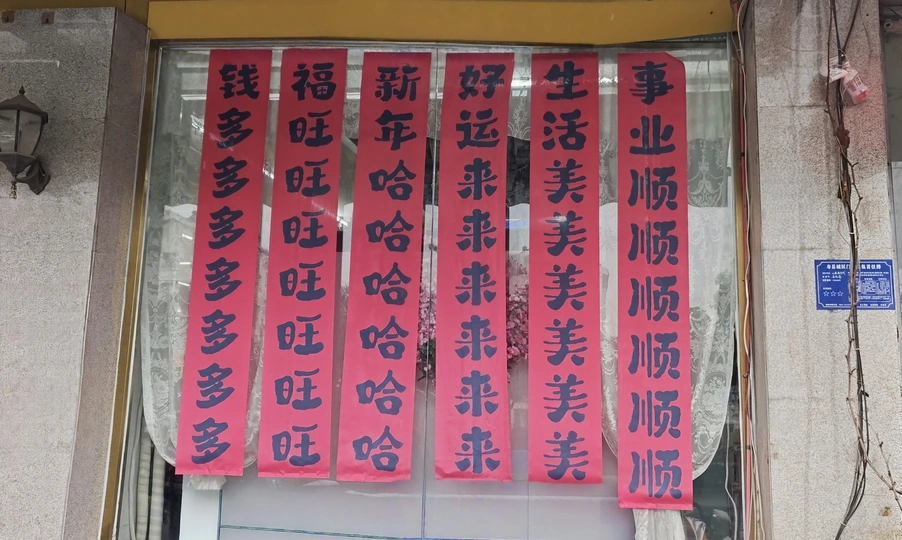 事业顺顺顺顺顺顺
生活美美美美美美
好运来来来来来来
新年哈哈哈哈哈哈
福旺旺旺旺旺旺旺
钱多多多多多多多